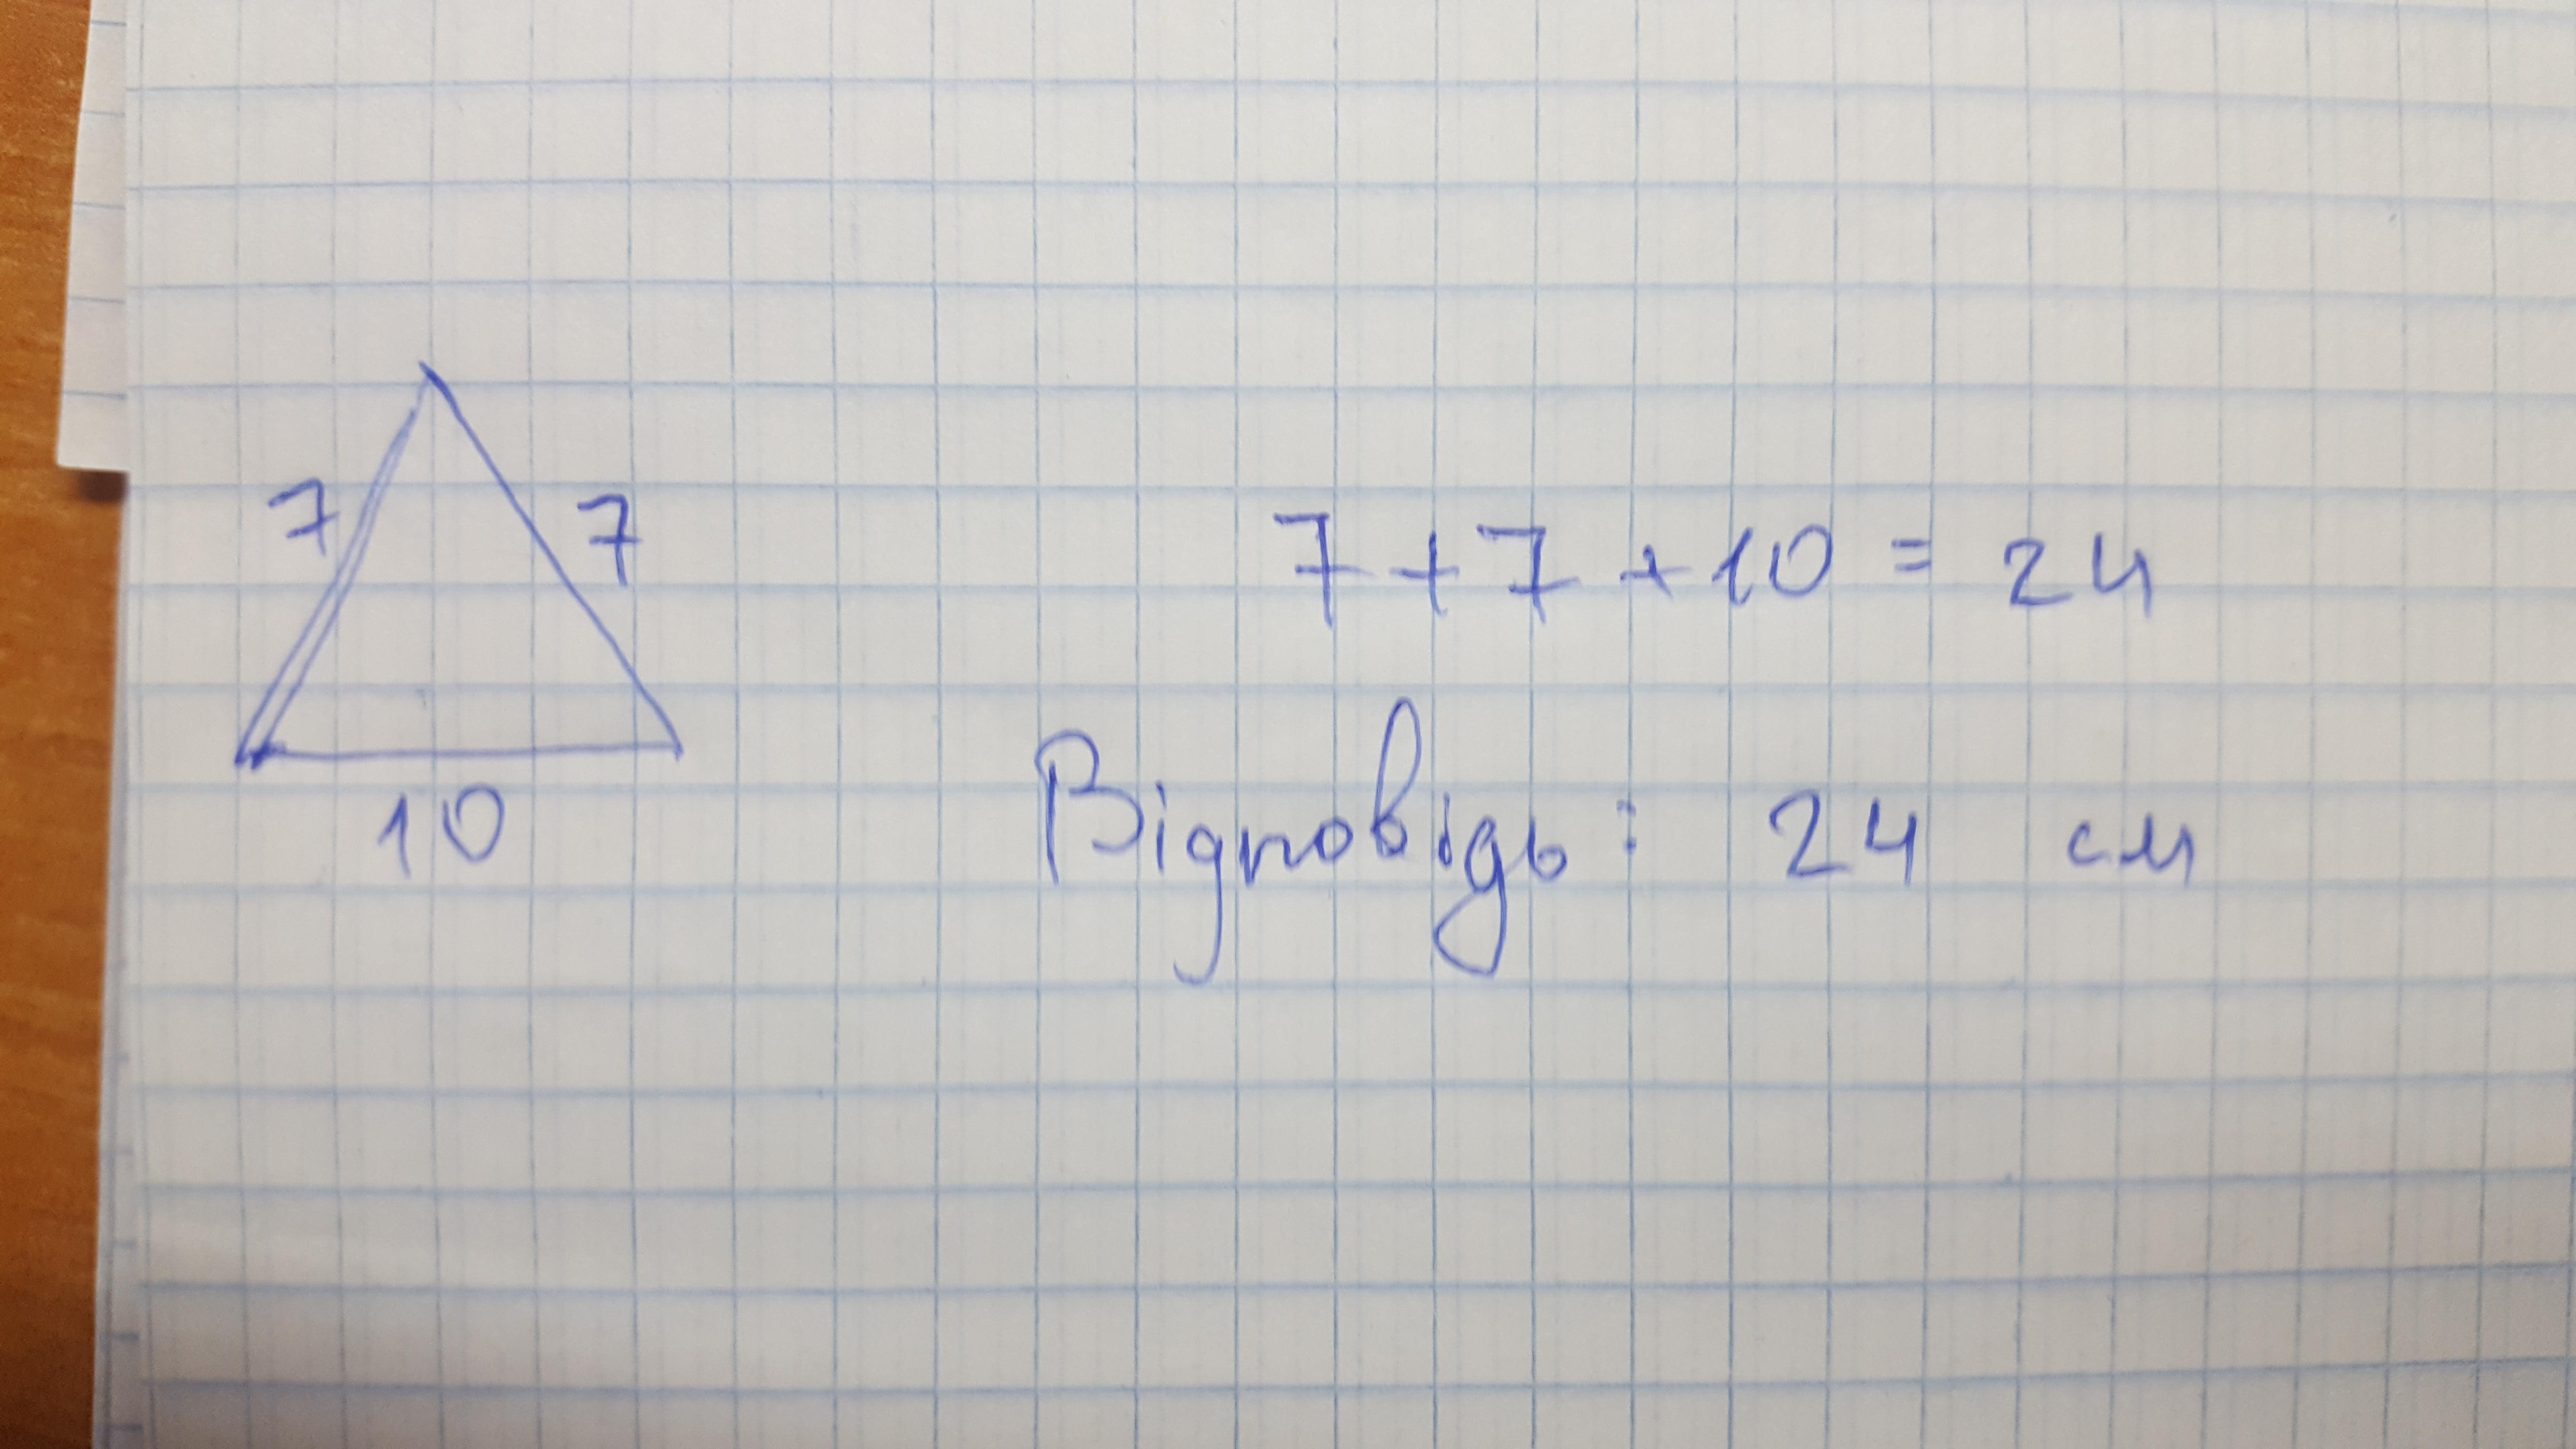 7 7
7 + 7 + 10 = 24
10
Відповідь: 24 см